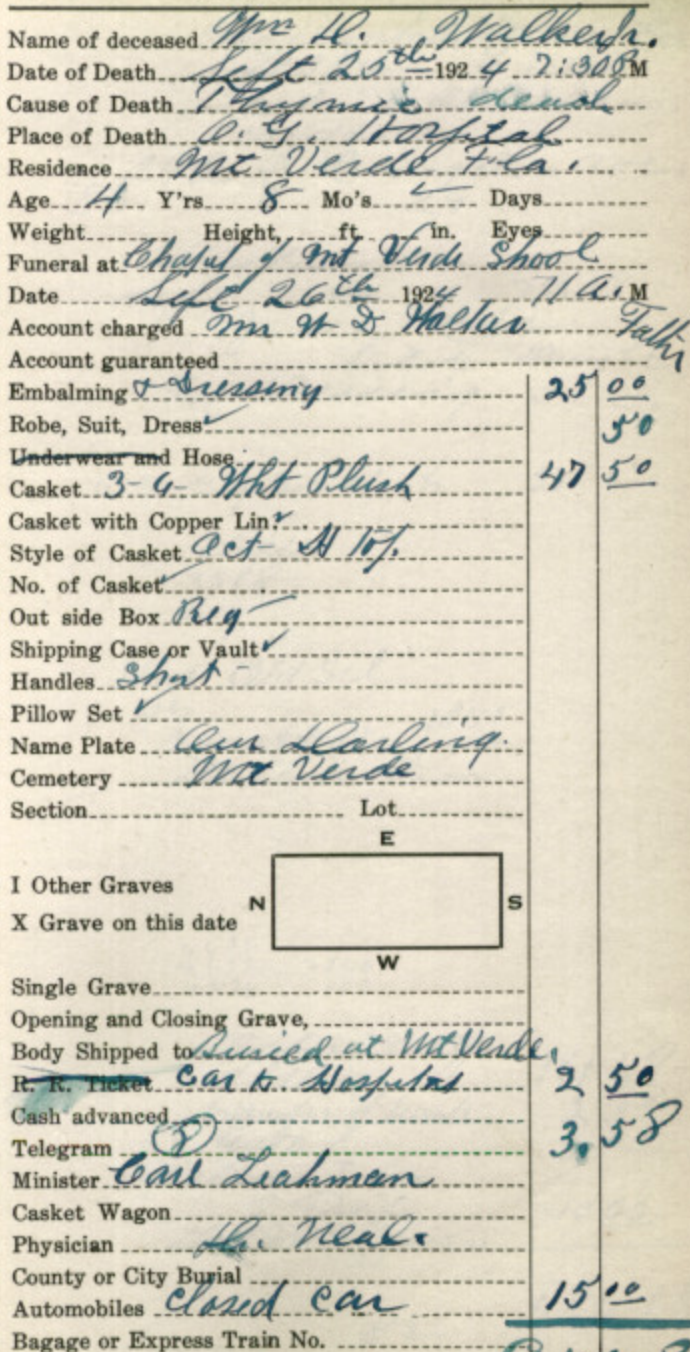 Name of deceased Wm D. Walker Jr.
Date of Death Sept 25th 1924 7:30 P M
Cause of Death Thymic death
Place of Death O. G. Hospital
Residence Mt Verde Fla.
Age 4 Y'rs 8 Mo's Days
Weight Height, ft. in. Eyes
Funeral at Chapel of Mt Verde Shool
Date Sept 26th 1924 11 A. M
Account charged Mr W D Walker Father
Account guaranteed
Embalming & Dressing 25 00
Robe, Suit, Dress 50
Underwear and Hose
Casket 3-6- Wht Plush 47 50
Casket with Copper Lin.
Style of Casket Oct
No. of Casket
Out side Box Reg
Shipping Case or Vault
Handles Short
Pillow Set
Name Plate Our Darling.
Cemetery Mt Verde
Section Lot
E
I Other Graves
N S
X Grave on this date
W
Single Grave
Opening and Closing Grave,
Body Shipped to Buried at Mt Verde.
R. R. Ticket Car to Hospital 2 50
Cash advanced
Telegram 3.58
Minister Carl
Casket Wagon
Physician Dr. Neal.
County or City Burial
Automobiles Closed Car 15 00
Bagage or Express Train No.